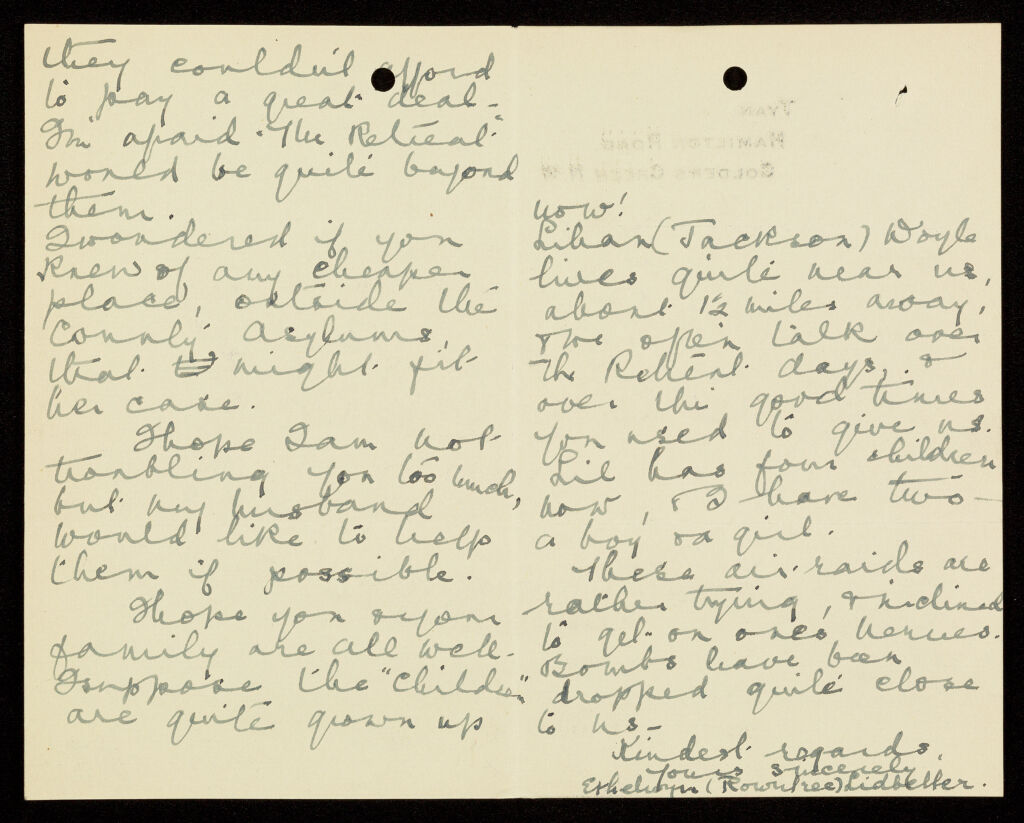 they couldn't afford
to pay a great deal -
I'm afraid "The Retreat"
would be quite beyond
them.
I wondered if you
knew of any cheaper
place, outside the
County Asylums,
that might fit
her case.
I hope I am not
troubling you too much,
but my husband
would like to help
them if possible.
I hope you & your
family are all well.
I suppose the "children"
are quite grown up
IVAN
HAMILTON ROAD
GOLDERS GREEN N.W.
now!
Lilian (Jackson) Doyle
lives quite near us,
about 1½ miles away,
& we often talk over
the Retreat days, &
over the good times
you used to give us.
Lil has four children
now, & I have two -
a boy & a girl.
These air-raids are
rather trying, & inclined
to get on ones nerves.
Bombs have been
dropped quite close
to us -
Kindest regards,
Yours sincerely
Ethelwyn (Rowntree) Lidbetter.